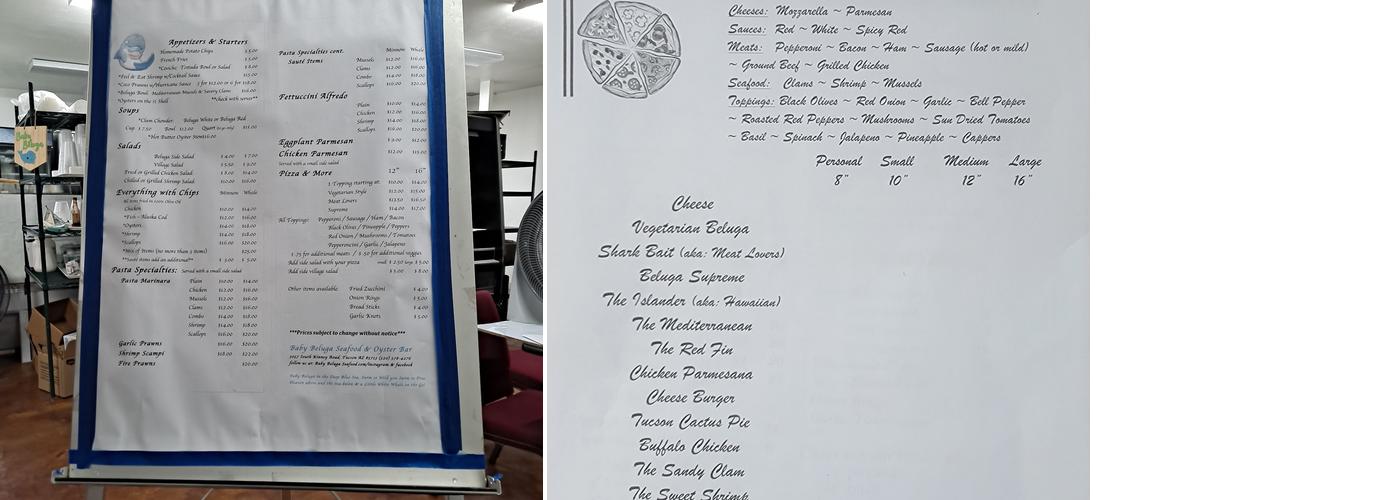 Appetizers & Starters
Homemade Potato Chips $ 5.00
French Fries $ 5.00
*Ceviche Tostada Bowl or Salad $ 8.00
*Peel & Eat Shrimp w/Cocktail Sauce $15.00
*Coco Prawns w/Hurricane Sauce
*Beluga Bowl Mediterranean Mussels & Savory Clams $16.00
*Oysters on the ½ Shell **check with server**
Soups
*Clam Chowder: Beluga White or Beluga Red
Cup $ 7.50 Bowl $12.00 Quart
*Hot Butter Oyster Stew
Salads
Beluga Side Salad $ 4.00 $ 7.00
Village Salad $ 5.50 $ 9.00
Fried or Grilled Chicken Salad $ 8.00 $14.00
Chilled or Grilled Shrimp Salad $10.00 $16.00
Everything with Chips Minnow Whale
All item fried in 100% Olive Oil
Chicken $10.00 $14.00
*Fish ~ Alaska Cod $12.00 $16.00
*Oysters $14.00 $18.00
*Shrimp $14.00 $18.00
*Scallops $16.00 $20.00
*Mix of Items (no more than 3 items) $25.00
**Sauté items add an additional** $ 3.00 $ 5.00
Pasta Specialties: Served with a small side salad
Pasta Marinara Plain $10.00 $14.00
Chicken $12.00 $16.00
Mussels $12.00 $16.00
Clams $12.00 $16.00
Combo $14.00 $18.00
Shrimp $14.00 $18.00
Scallops $16.00 $20.00
Garlic Prawns $16.00 $20.00
Shrimp Scampi $18.00 $22.00
Fire Prawns $20.00
Pasta Specialties cont. Minnow Whale
Sauté Items Mussels $12.00 $16.00
Clams $12.00 $16.00
Combo $14.00 $18.00
Scallops $16.00 $20.00
Fettuccini Alfredo
Plain $10.00 $14.00
Chicken $12.00 $16.00
Shrimp $14.00 $18.00
Scallops $16.00 $20.00
Eggplant Parmesan $ 9.00 $12.00
Chicken Parmesan $12.00 $15.00
Served with a small side salad
Pizza & More 12" 16"
1 Topping starting at: $10.00 $14.00
Vegetarian Style $12.00 $15.00
Meat Lovers $13.50 $16.50
Supreme $14.00 $17.00
All Toppings: Pepperoni / Sausage / Ham / Bacon
Black Olives / Pineapple / Peppers
Red Onion / Mushrooms / Tomatoes
Pepperoncini / Garlic / Jalapeno
$ .75 for additional meats / $ .50 for additional veggies
Add side salad with your pizza small $ 2.50 large $ 5.00
Add side village salad $ 5.00 $ 8.00
Other items available: Fried Zucchini $ 4.00
Onion Rings $ 5.00
Bread Sticks $ 4.00
Garlic Knots $ 5.00
***Prices subject to change without notice***
Baby Beluga Seafood & Oyster Bar
South Kinney Road, Tucson AZ
follow us at: Baby Beluga Seafood.com/instagram & facebook
Baby Beluga in the Deep Blue Sea, Swim so Wild you Swim so Free
Heaven above and the Sea below & a Little White Whale on the Go!
Baby
Beluga
Cheeses: Mozzarella ~ Parmesan
Sauces: Red ~ White ~ Spicy Red
Meats: Pepperoni ~ Bacon ~ Ham ~ Sausage (hot or mild)
~ Ground Beef ~ Grilled Chicken
Seafood: Clams ~ Shrimp ~ Mussels
Toppings: Black Olives ~ Red Onion ~ Garlic ~ Bell Pepper
~ Roasted Red Peppers ~ Mushrooms ~ Sun Dried Tomatoes
~ Basil ~ Spinach ~ Jalapeno ~ Pineapple ~ Cappers
Personal Small Medium Large
8" 10" 12" 16"
Cheese
Vegetarian Beluga
Shark Bait (aka: Meat Lovers)
Beluga Supreme
The Islander (aka: Hawaiian)
The Mediterranean
The Red Fin
Chicken Parmesana
Cheese Burger
Tucson Cactus Pie
Buffalo Chicken
The Sandy Clam
The Sweet Shrimp